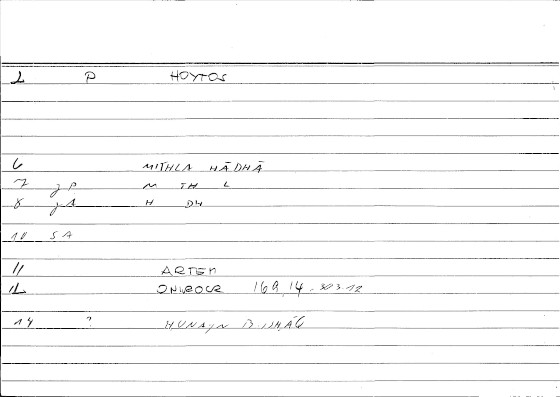 2 P HOYTOS
6 MITHLA HĀDHĀ
7 gP M TH L
8 gA H DH
10 SA
11 ARTEM
12 ONIROCR 169,14 - 303.12
14 ? HUNAYN B ISHĀQ